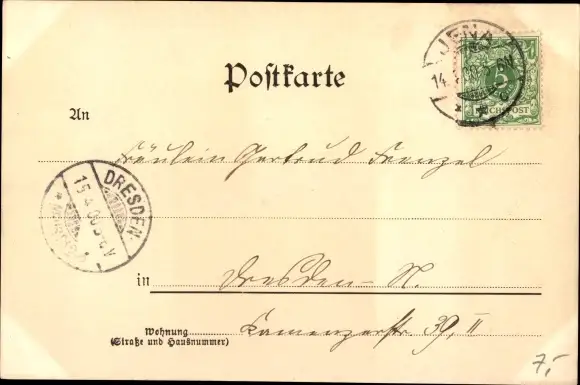 JENA
14.
5
REICHSPOST
Postkarte
An
Fräulein Gertrud Frenzel
DRESDEN
15 4 00
in Dresden-N.
Wohnung
(Straße und Hausnummer)
Kamenzerstr. 39, II
7,-